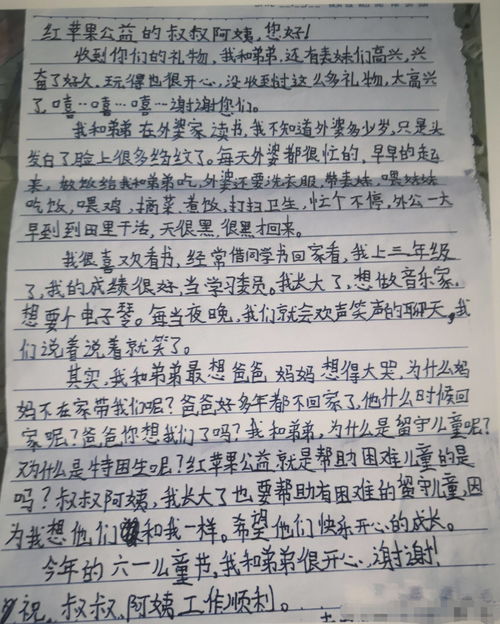 红苹果公益的叔叔阿姨,您好!
收到你们的礼物,我和弟弟,还有表妹们高兴,兴
奋了好久,玩得也很开心,没收到过这么多礼物,大高兴
了,嘻…嘻…嘻…谢谢您们。
我和弟弟在外婆家读书,我不知道外婆多少岁,只是头
发白了脸上很多纹了。每天外婆都很忙的,早早的起
来,做饭给我和弟弟吃,外婆还要洗衣服,带表妹,喂妹妹
吃饭,喂鸡,摘菜,煮饭,打扫卫生,忙个不停,外公一大
早到到田里干活,天很黑,很黑才回来。
我很喜欢看书,经常借同学书回家看,我上三年级
了,我的成绩很好,当学习委员。我长大了,想做音乐家,
想要个电子琴。每当夜晚,我们就会欢声笑声的聊天,我
们说着说着就笑了。
其实,我和弟弟最想爸爸,妈妈想得大哭,为什么妈
妈不在家带我们呢?爸爸好多年都不回家了,他什么时候回
家呢?爸爸你想我们了吗?我和弟弟,为什么是留守儿童呢?
为什么是特困生呢?红苹果公益就是帮助困难儿童的是
吗?叔叔阿姨,我长大了也要帮助有困难的留守儿童,因
为我想他们和我一样。希望他们快乐开心的成长。
今年的六一儿童节,我和弟弟很开心,谢谢!
祝,叔叔,阿姨工作顺利。